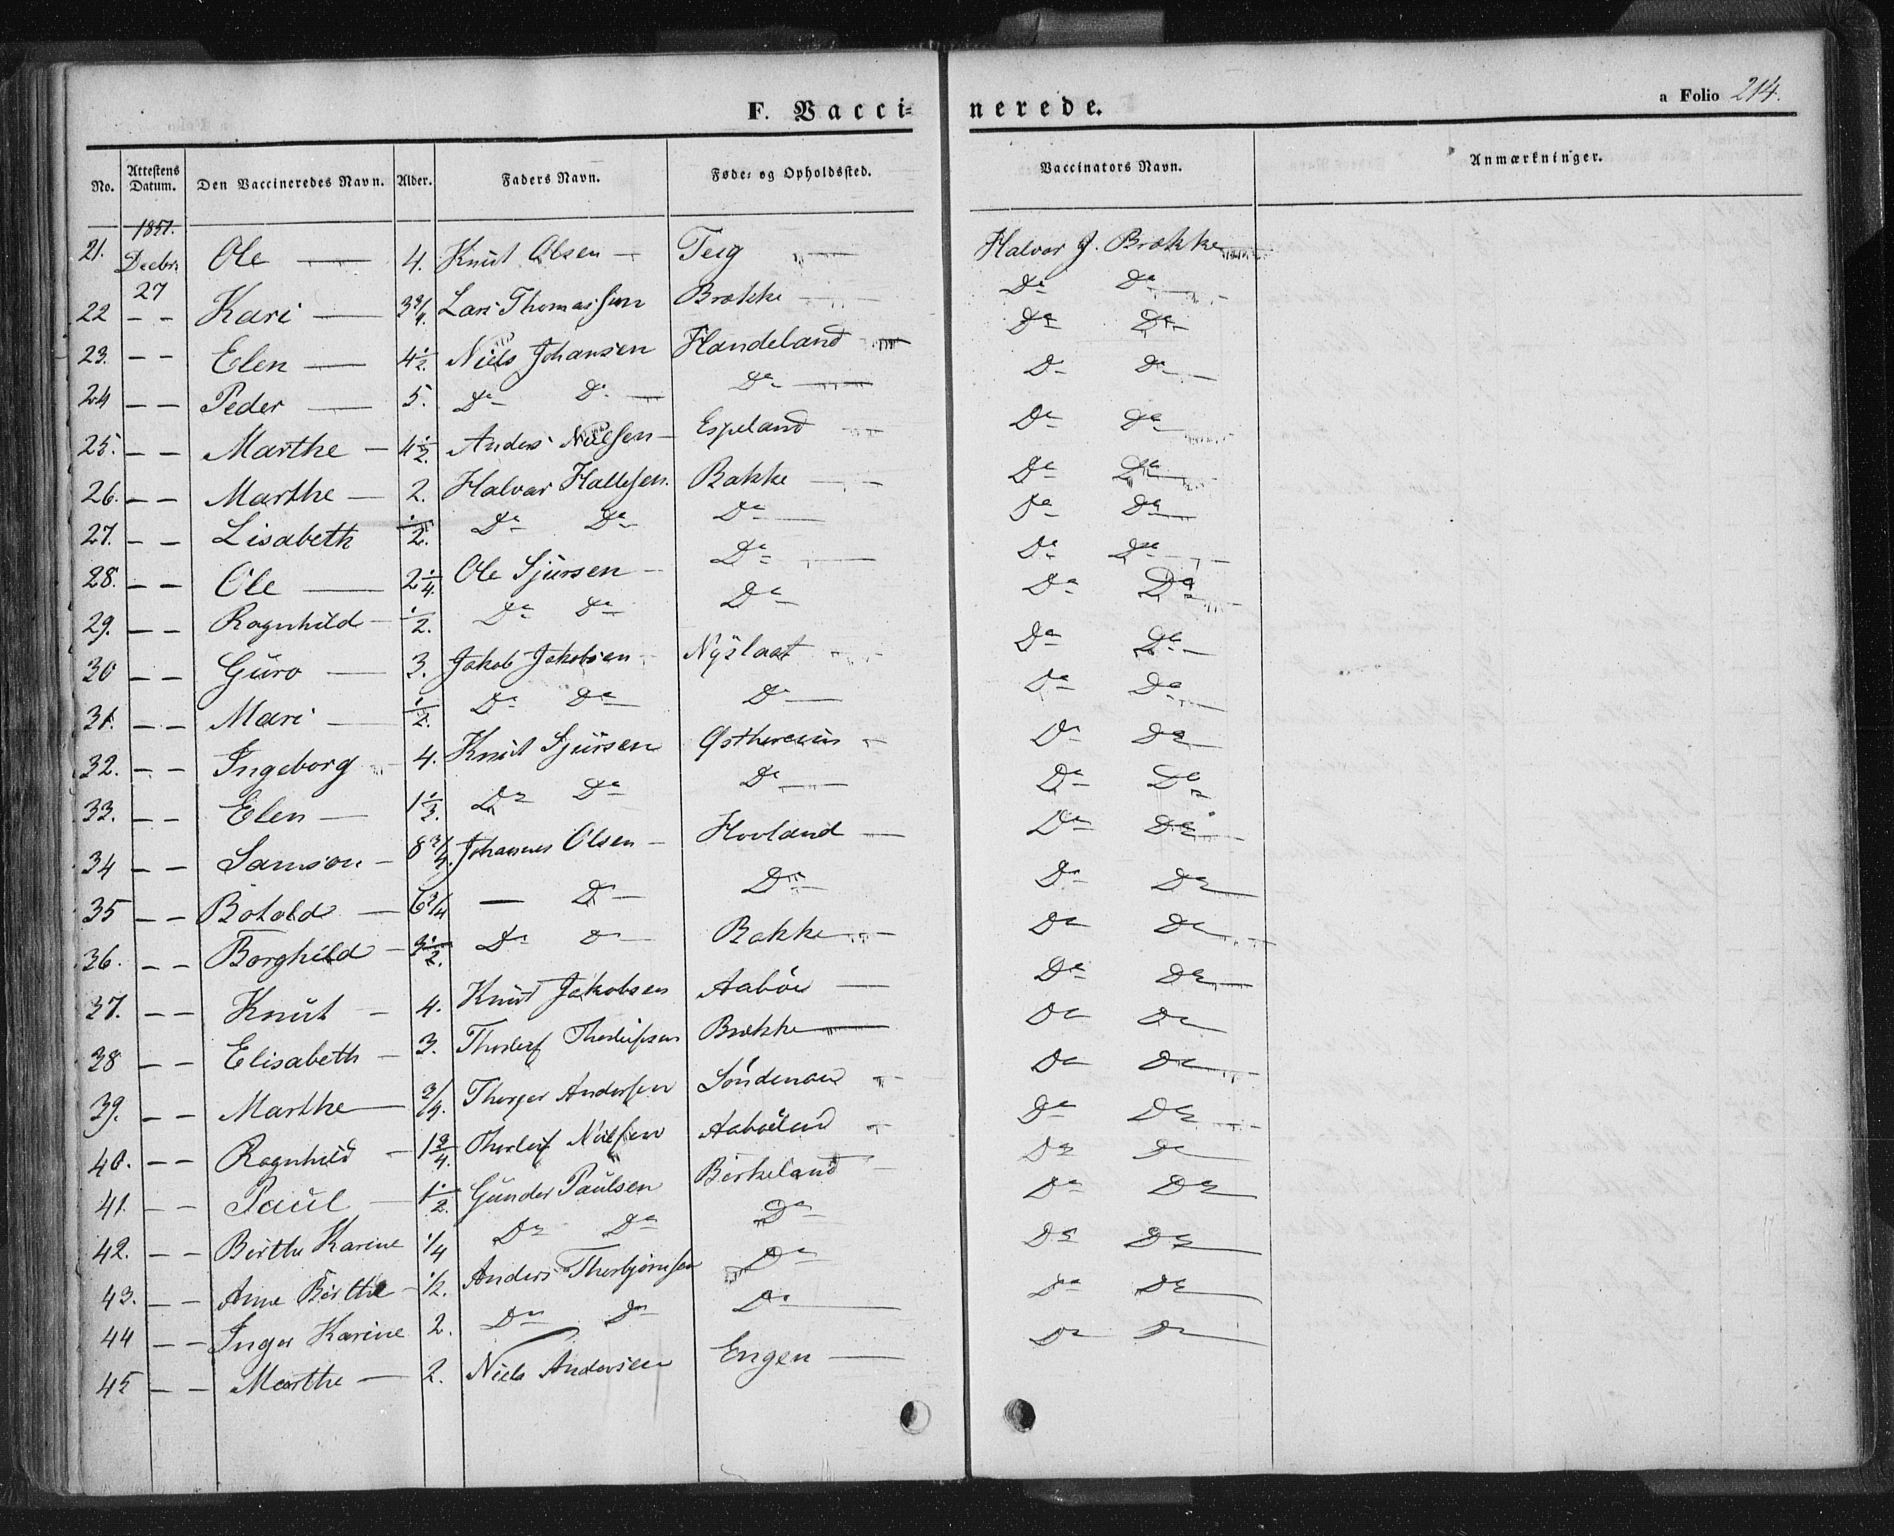 F. Vacci-nerede.
a Folio 214.
No. Attestens Datum. Den Vaccineredes Navn. Alder. Faders Navn. Føde- og Opholdssted. Vaccinators Navn. Anmærkninger.
1851.
21. Decbr. 27 Ole — 4. Knut Olsen — Teig — Halvor J. Brokke
22 - - Kari — 3 3/4. Lars Thomassen Brokke Do Do
23. - - Elen — 4 1/2. Niels Johansen Handeland Do Do
24 - - Peder — 5. Do Do Do Do Do
25. - - Marthe — 4 1/2. Anders Nielsen — Espeland Do Do
26. - - Marthe — 2. Halvor Hallesen. Bakke Do Do
27. - - Lisabeth 1/2. Do Do Do Do Do
28. - - Ole — 2 1/4. Ole Sjursen — Do Do Do
29. - - Ragnhild — 1/2. Do Do Do Do Do
30 - - Guro — 3. Jakob Jakobsen Do Do
31. - - Mari — 1/2. Do Do Do Do Do
32. - - Ingeborg 4. Knut Sjursen Do Do
33. - - Elen — 1 1/3. Do Do Do Do Do
34 - - Samson — 8 3/4. Johannes Olsen — Hovland — Do Do
35 - - Botold — 6 3/4 — Do Do Do Do
36. - - Borghild — 3 1/2. Do Do Bakke Do Do
37. - - Knut — 4. Knut Jakobsen Aaböe — Do Do
38 - - Elisabeth — 3. Thorleif Thorleifsen Brokke Do Do
39. - - Marthe — 3/4. Thorger Andersen Söndenaae Do Do
40. - - Ragnhild — 1 3/4. Thorleif Nielsen Do Do
41. - - Paul — 1 1/2. Gunder Paulsen Birkeland Do Do
42. - - Berthe Karine 1/4 Do Do Do Do Do
43. - - Anne Berthe — 1/2. Anders Thorbjørnsen Do Do Do
44 - - Inger Karine 2. Do Do Do Do Do
45 - - Marthe — 2. Niels Andersen Engen — Do Do